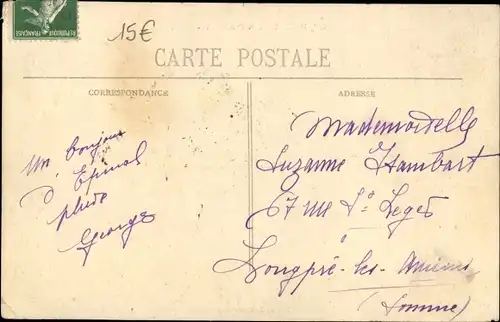 15€
CARTE POSTALE
CORRESPONDANCE
ADRESSE
Un bonjour
D'Epinal
Georges
Mademoiselle
Suzanne Hambart
67 rue St Leger
Longpré-les-Amiens
(Somme)